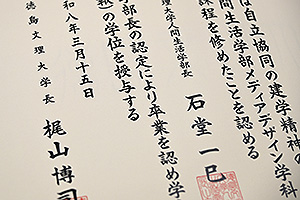 は自立協同の建学精神の
間生活学部メディアデザイン学科
課程を修めたことを認める
理大学人間生活学部長
石堂一巳
学部長の認定により卒業を認め学
の学位を授与する
和八年三月十五日
徳島文理大学長
梶山博司